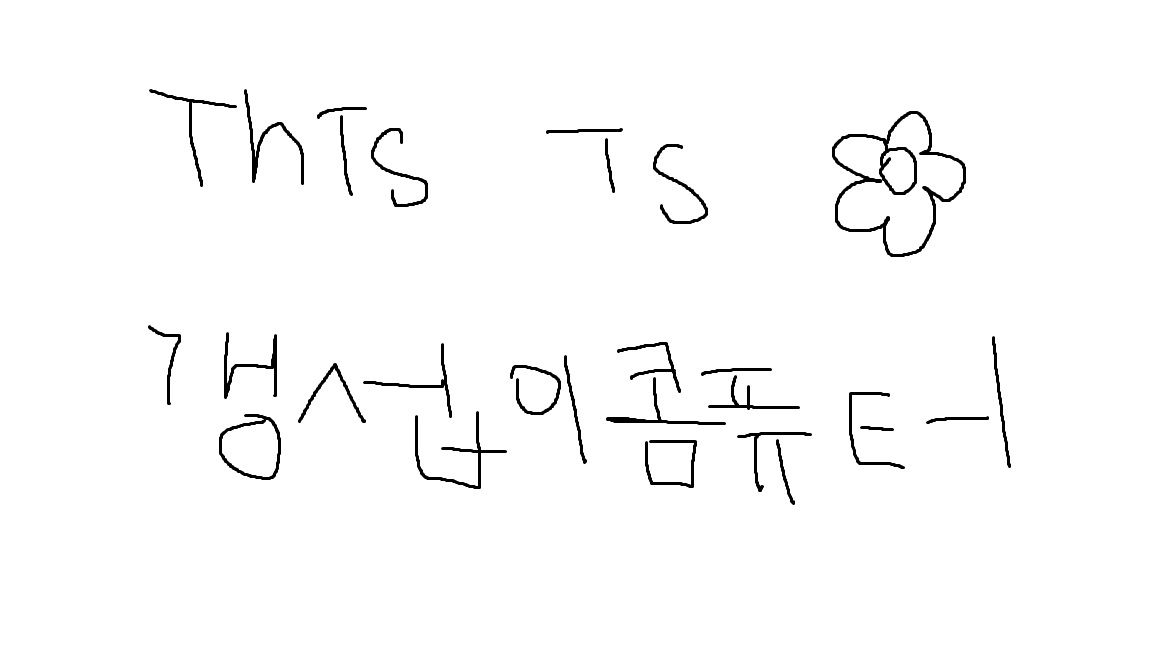 ThTs Ts
갱섭이콤퓨터